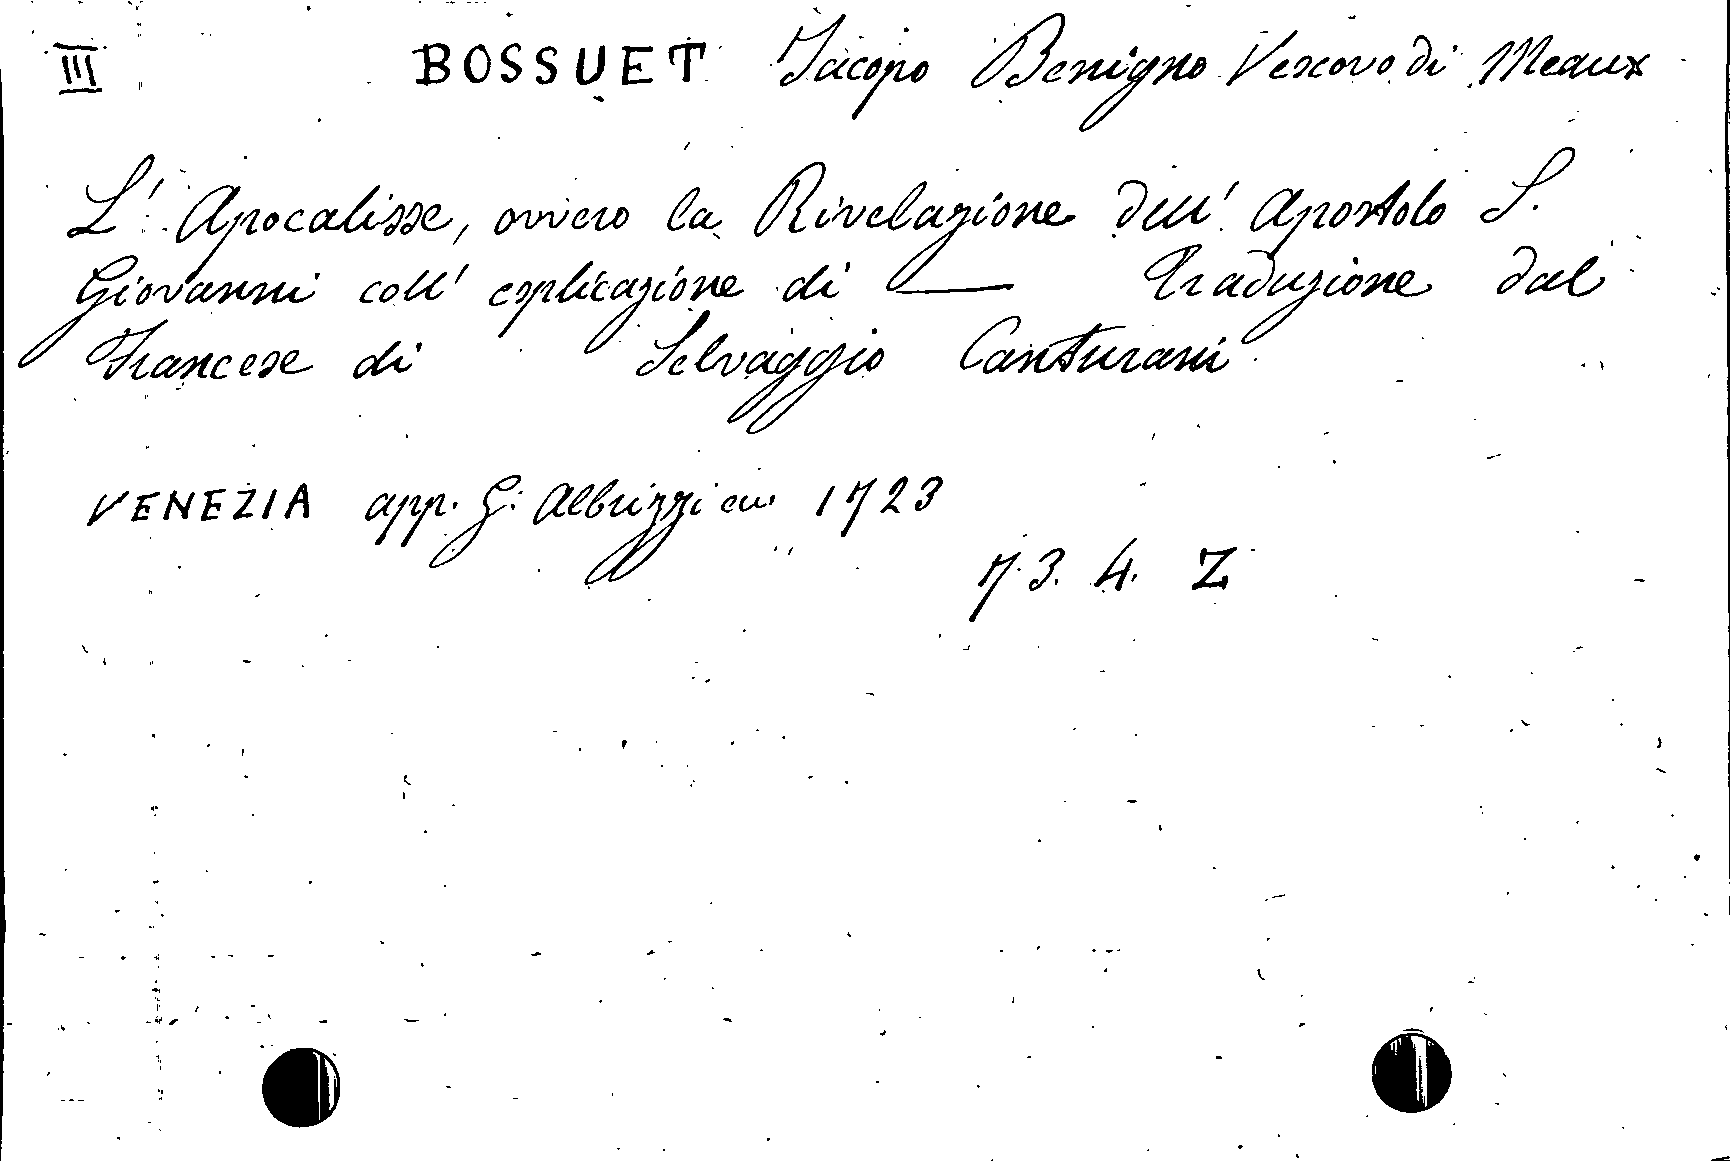 III BOSSUET Jacopo Benigno Vescovo di Meaux
L' Apocalisse, ovvero la Rivelazione dell' Apostolo S.
Giovanni coll' esplicazione di — Traduzione dal
Francese di Selvaggio Canturani
VENEZIA app. G. Albrizzi 1723
73. 4. Z